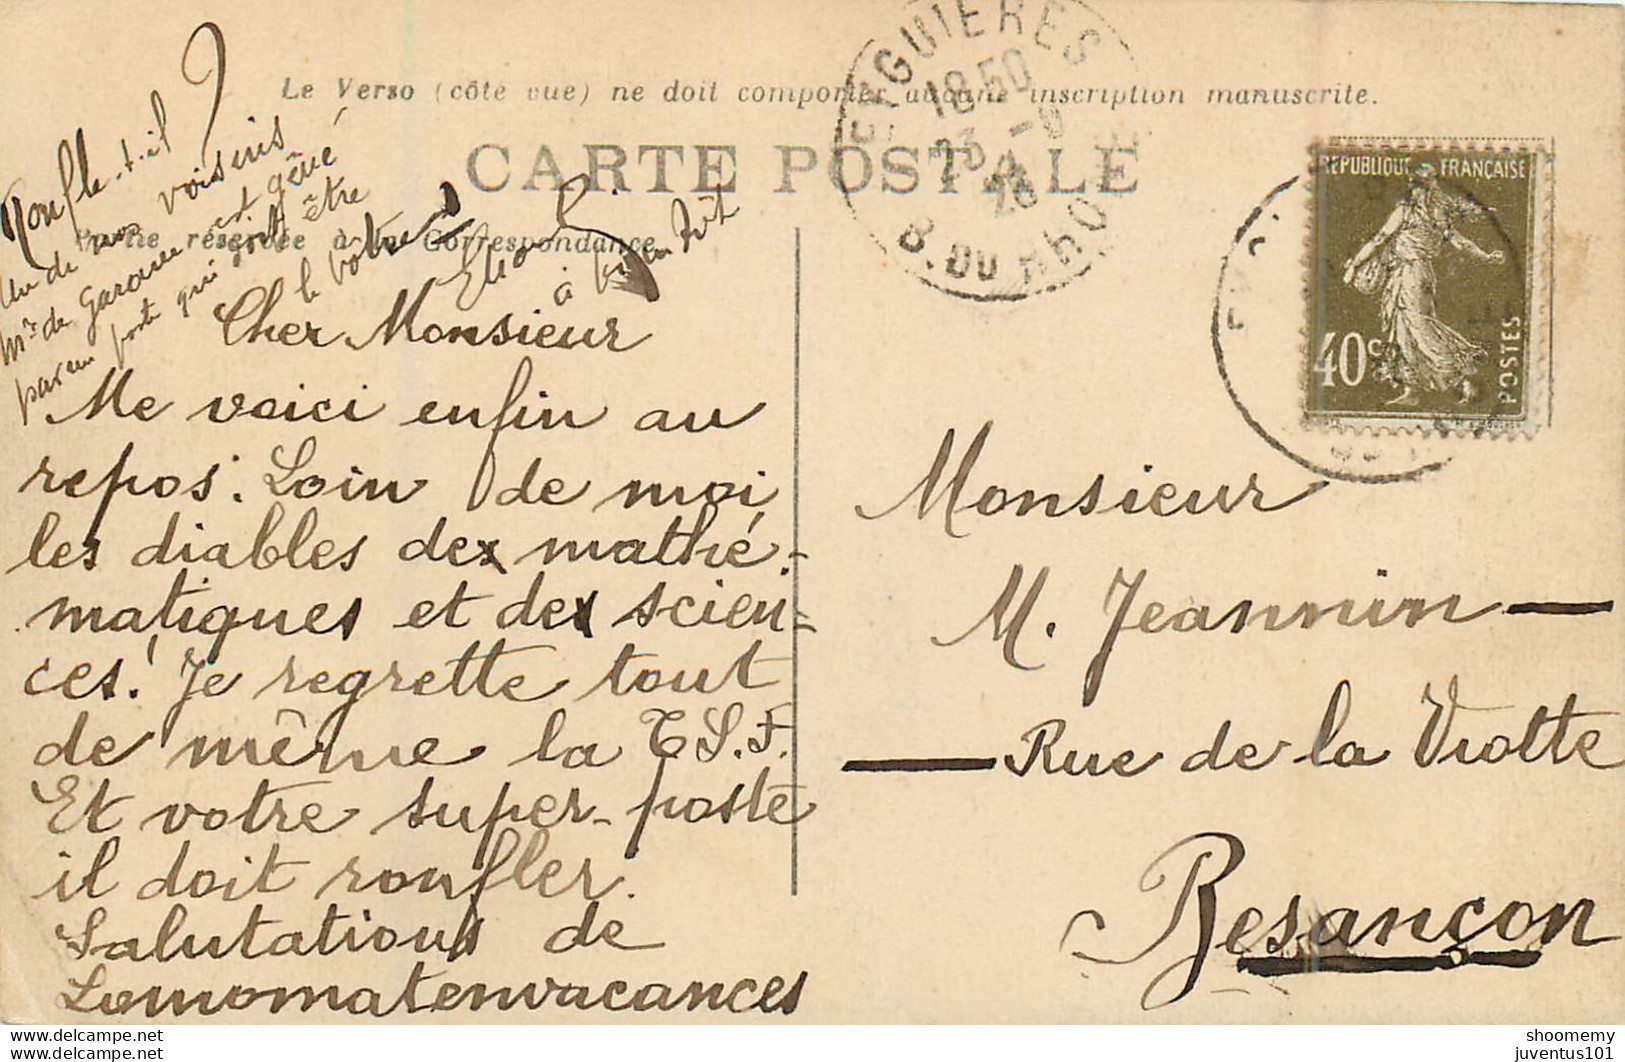 Le Verso (côté vue) ne doit comporter aucune inscription manuscrite.
CARTE POSTALE
Partie réservée à la Correspondance
EYGUIERES
18 50
23 -8
26
B. DU RHONE
REPUBLIQUE FRANÇAISE
40c
POSTES
Ronfle-t-il ?
Un de nos voisins
Mr de Garoum est gêné
par un poste qui doit être
le vôtre
à bientôt
Cher Monsieur
Me voici enfin au
repos. Loin de moi
les diables de mathé-
matiques et de scien-
ces! Je regrette tout
de même la T.S.F.
Et votre super-poste
il doit ronfler.
Salutations de
Lomomatenvacances
Monsieur
M. Jeannin
Rue de la Viotte
Besançon
shoomemy
juventus101